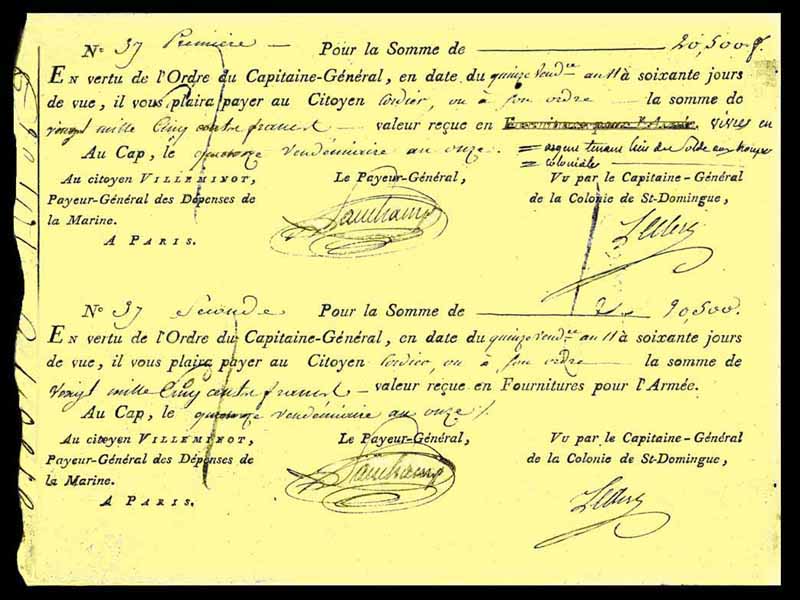 N° 37 Première — Pour la Somme de — 20,500 f.
EN vertu de l'Ordre du Capitaine-Général, en date du quinze Vend.re an 11 à soixante jours
de vue, il vous plaira payer au Citoyen Cordier, ou à son ordre — la somme de
vingt mille Cinq cents francs — valeur reçue en Fournitures pour l'Armée. vivres en
Au Cap, le quinze Vendémiaire an onze. = argent tenant lieu de Solde aux troupes
= coloniales
Au citoyen VILLEMINOT, Le Payeur-Général, Vu par le Capitaine-Général
Payeur-Général des Dépenses de de la Colonie de St-Domingue,
la Marine.
A PARIS. Leclerc
N° 37 Seconde Pour la Somme de — 20,500.
EN vertu de l'Ordre du Capitaine-Général, en date du quinze Vend.re an 11 à soixante jours
de vue, il vous plaira payer au Citoyen Cordier, ou à son ordre — la somme de
Vingt mille Cinq cents francs — valeur reçue en Fournitures pour l'Armée.
Au Cap, le quinze Vendémiaire an onze
Au citoyen VILLEMINOT, Le Payeur-Général, Vu par le Capitaine-Général
Payeur-Général des Dépenses de de la Colonie de St-Domingue,
la Marine.
A PARIS. Leclerc